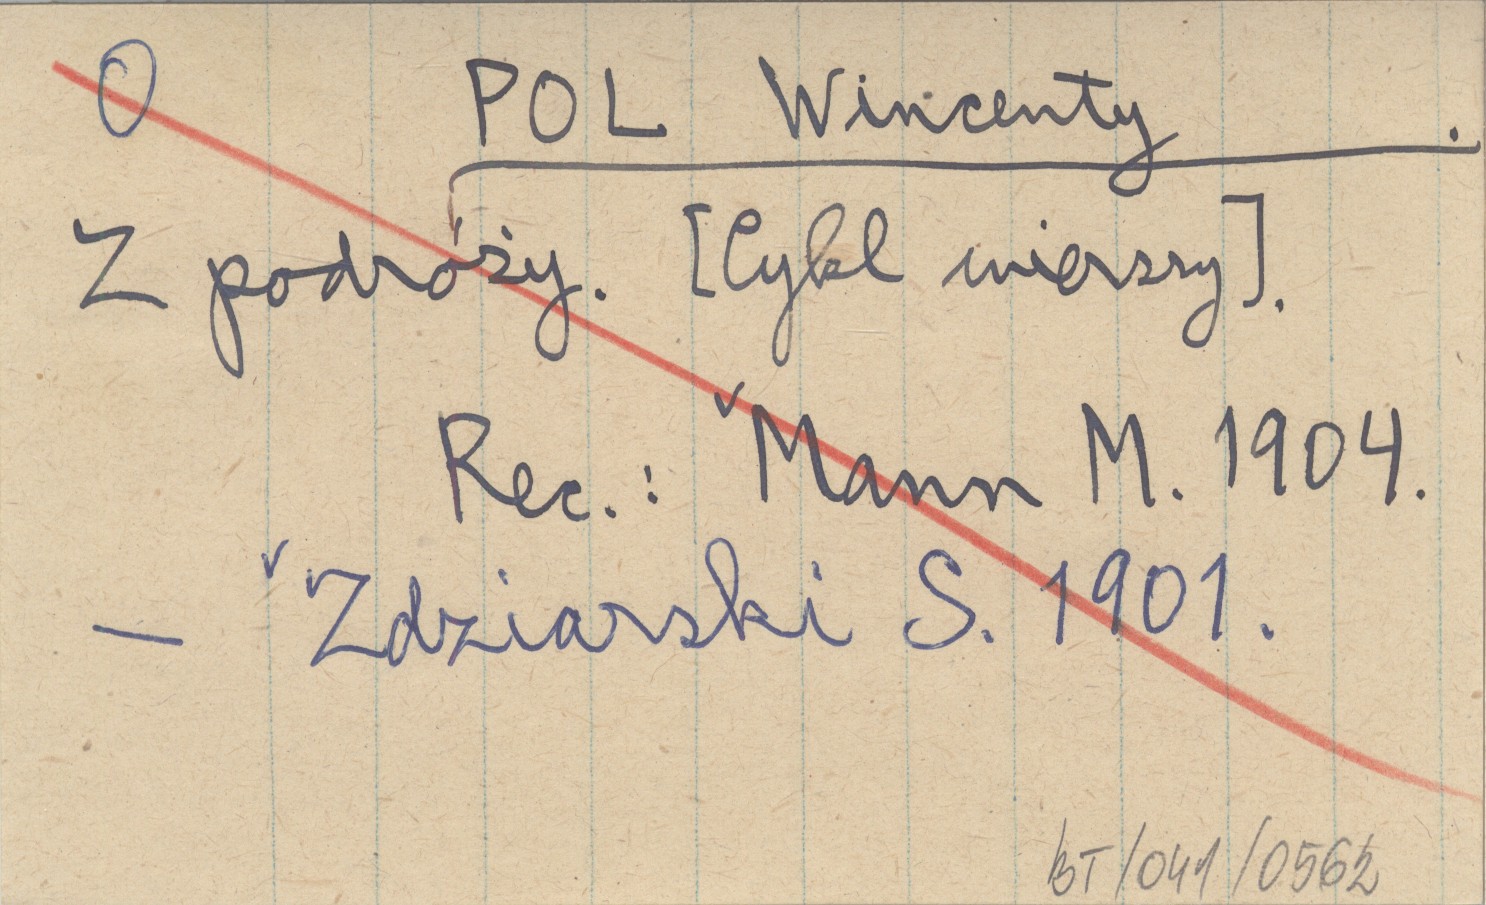 O POL Wincenty .
Z podróży. [Cykl wierszy].
Rec.: ✓Mann M. 1904.
— ✓Zdziarski S. 1901.
BT/041/0562